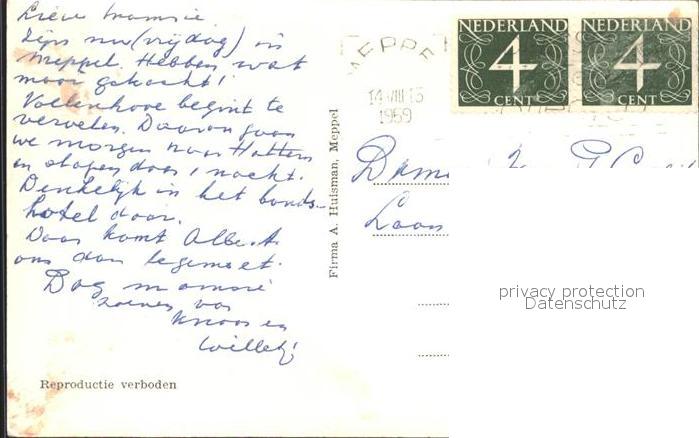 Lieve mamsie.
Zijn nu (vrijdag) in
Meppel. Hebben wat
moois gekocht!
Vollenhove begint te
vervelen. Daarom gaan
we morgen naar Hattem
en slapen daar 1 nacht.
Denkelijk in het bonds-
hotel daar.
Daar komt Albert
ons dan tegemoet.
Dag mamsie
zoenen van
en
Reproductie verboden
Firma A. Huisman, Meppel
NEDERLAND
4
CENT
NEDERLAND
4
CENT
MEPPEL
14 VIII 13
1959
privacy protection
Datenschutz